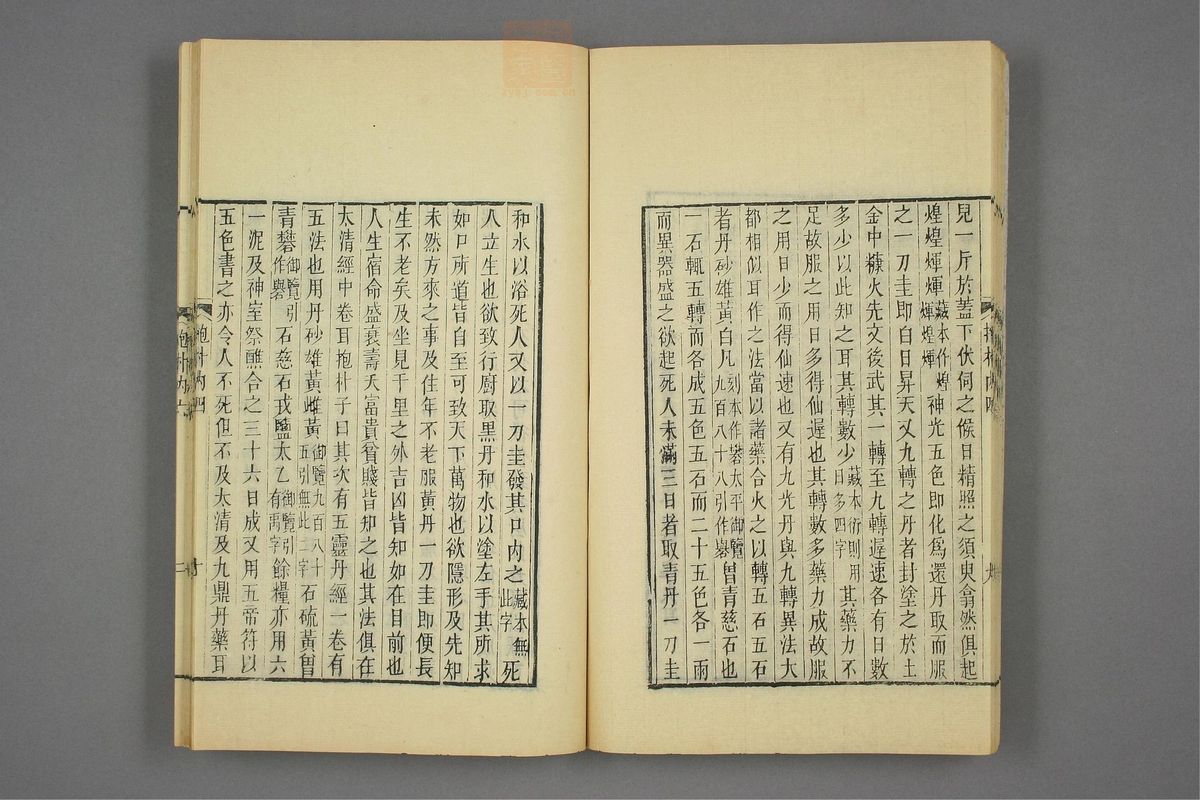 兒一斤於蓋下伏伺之候日精照之須臾翕然俱起
煌煌煇煇藏本作煌煇煌煇神光五色即化爲還丹取而服
之一刀圭即白日昇天又九轉之丹者封塗之於土
金中糠火先文後武其一轉至九轉遲速各有日數
多少以此知之耳其轉數少藏本衍則用日多四字其藥力不
足故服之用日多得仙遲也其轉數多藥力成故服
之用日少而得仙速也又有九光丹與九轉異法大
都相似耳作之法當以諸藥合火之以轉五石五石
者丹砂雄黃白凡刻本作礬太平御覽九百八十八引作礜曾青慈石也
一石輒五轉而各成五色五石而二十五色各一兩
而異器盛之欲起死人未滿三日者取青丹一刀圭
抱朴內四
九
和水以浴死人又以一刀圭發其口內之藏本無此字死
人立生也欲致行廚取黑丹和水以塗左手其所求
如口所道皆自至可致天下萬物也欲隱形及先知
未然方來之事及住年不老服黃丹一刀圭即便長
生不老矣及坐見千里之外吉凶皆知如在目前也
人生宿命盛衰壽夭富貴貧賤皆知之也其法俱在
太清經中卷耳抱朴子曰其次有五靈丹經一卷有
五法也用丹砂雄黃雌黃御覽九百八十五引無此二字石硫黃曾
青礬御覽引作礜石慈石戎鹽太乙御覽引有禹字餘糧亦用六
一泥及神室祭醮合之三十六日成又用五帝符以
五色書之亦令人不死但不及太清及九鼎丹藥耳
抱朴內四
十